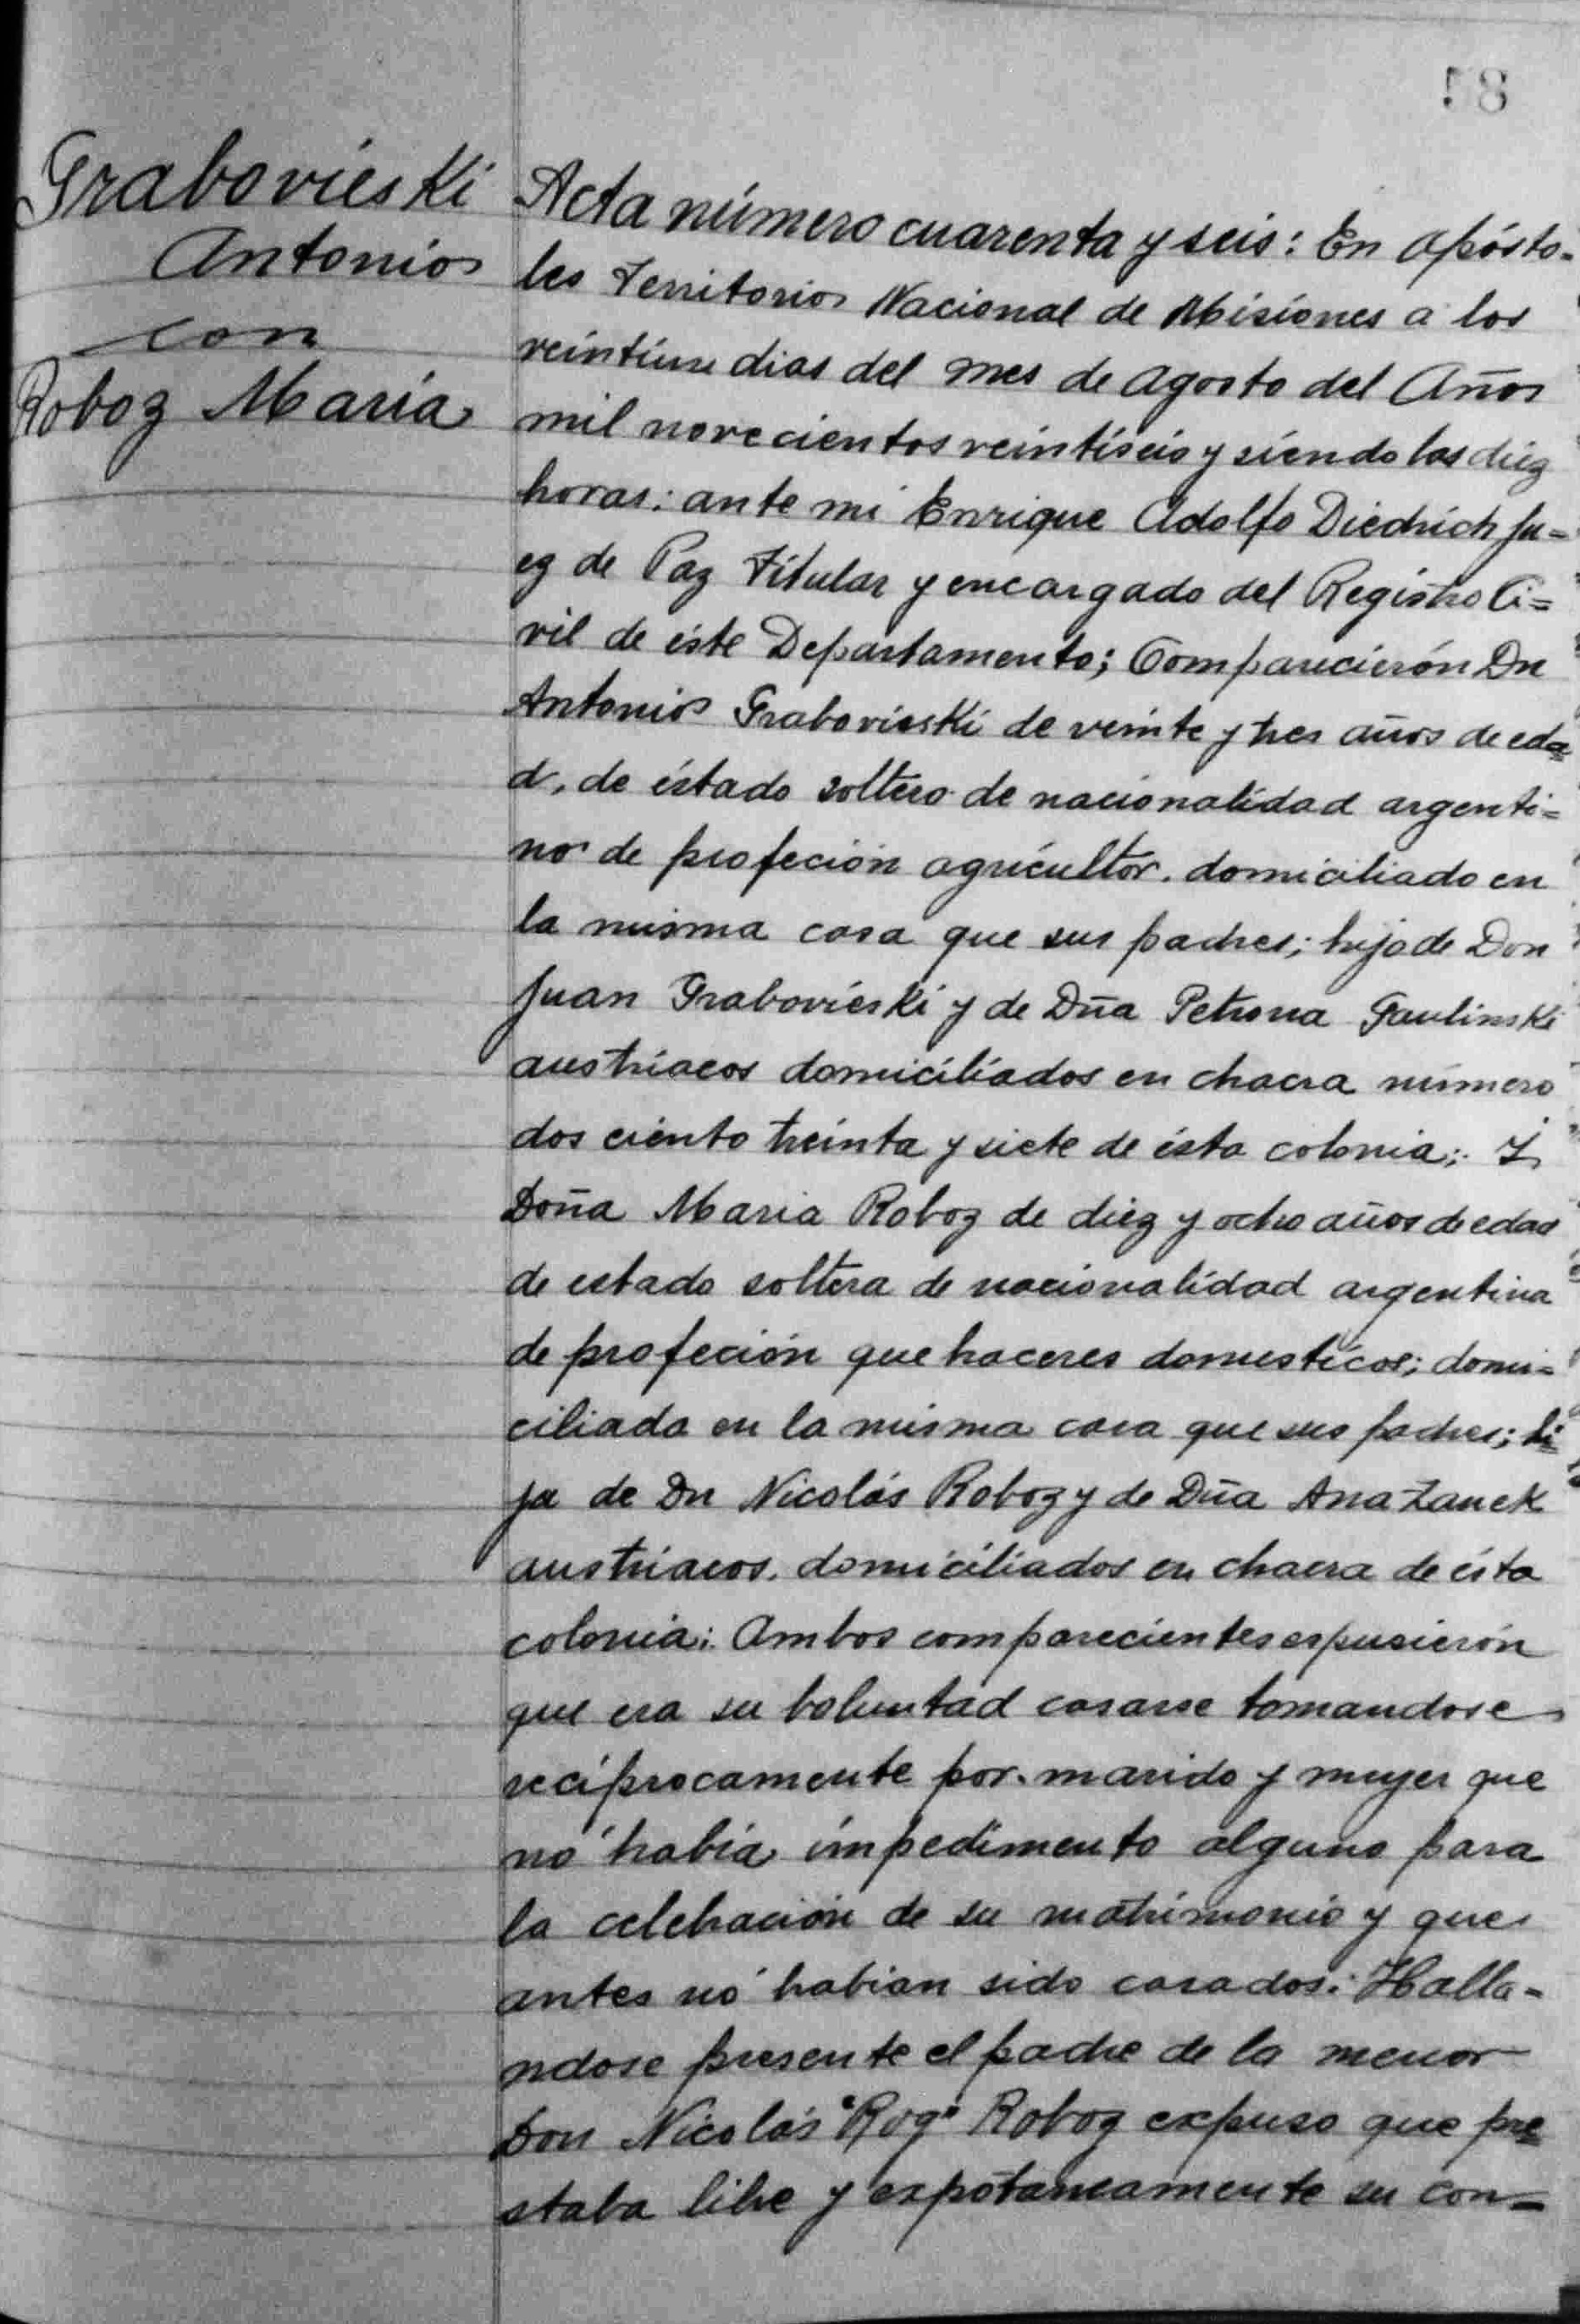 58
Grabovieski
Antonio
con
Roboz Maria
Acta número cuarenta y seis: En Apósto-
les Territorio Nacional de Misiones a los
veintiun dias del mes de Agosto del Año
mil novecientos veintiseis y siendo las diez
horas: ante mi Enrique Adolfo Diedrich Ju=
ez de Paz Titular y encargado del Registro Ci=
vil de éste Departamento; Comparecierón Dn
Antonio Grabovieski de veinte y tres años de eda
d, de éstado soltero de nacionalidad argenti=
no de profeción agricultor. domiciliado en
la misma casa que sus padres; hijo de Don
Juan Grabovieski y de Dña Petrona Paulinski
austriacos domiciliados en chacra número
dos ciento treinta y siete de ésta colonia; Y
Doña Maria Roboz de diez y ocho años de edad
de estado soltera de nacionalidad argentina
de profeción que haceres domesticos; domi=
ciliada en la misma casa que sus padres; hi=
ja de Dn Nicolás Roboz y de Dña Ana Zanek
austriacos. domiciliados en chacra de ésta
colonia: Ambos comparecientes espusierón
que era su boluntad casarse tomandose
reciprocamente por marido y mujer que
nó había impedimento alguno para
la celebración de su matrimonio y que
antes nó habian sido casados: Halla-
ndose presente el padre de la menor
Don Nicolás "Rog" Roboz expuso que pre
staba libre y expótaneamente su con=